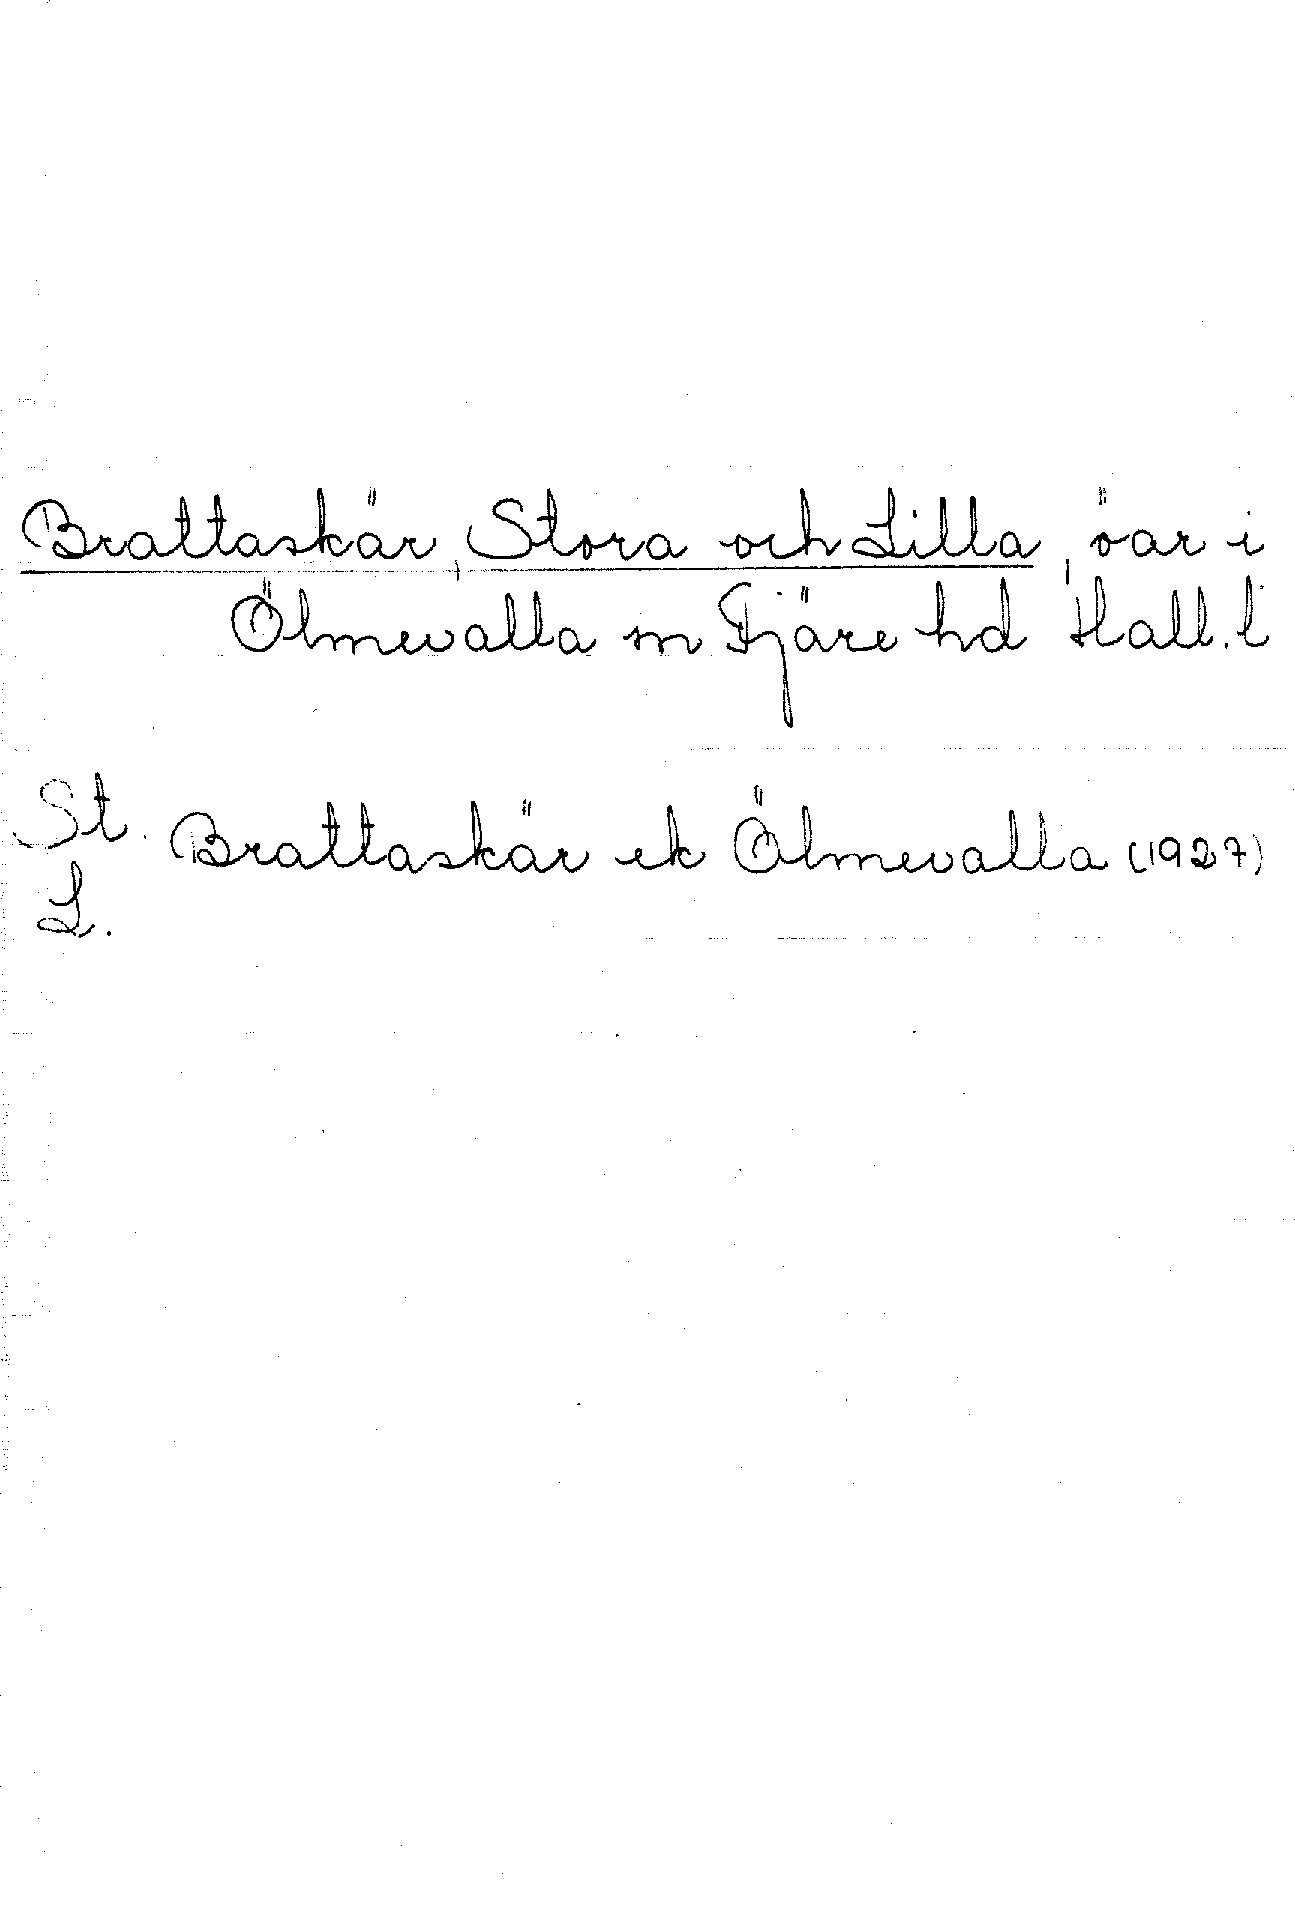 Brattaskär, Stora och Lilla, öar i
Ölmevalla sn Fjäre hd Hall. l
St.
Brattaskär ek Ölmevalla (1927)
L.